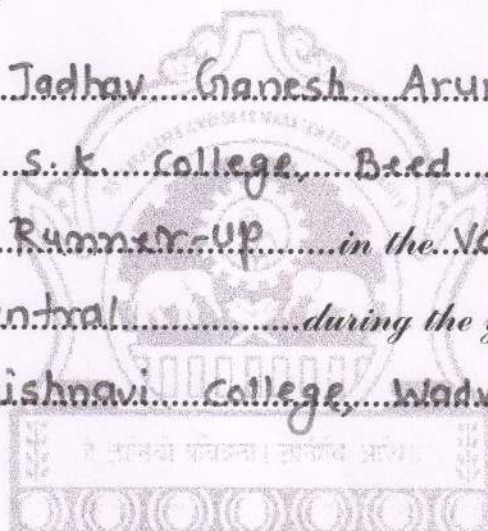 Jadhav Ganesh Arun
S.K. College, Beed
Runner-up in the
ntral during the
ishnavi College, Wadw